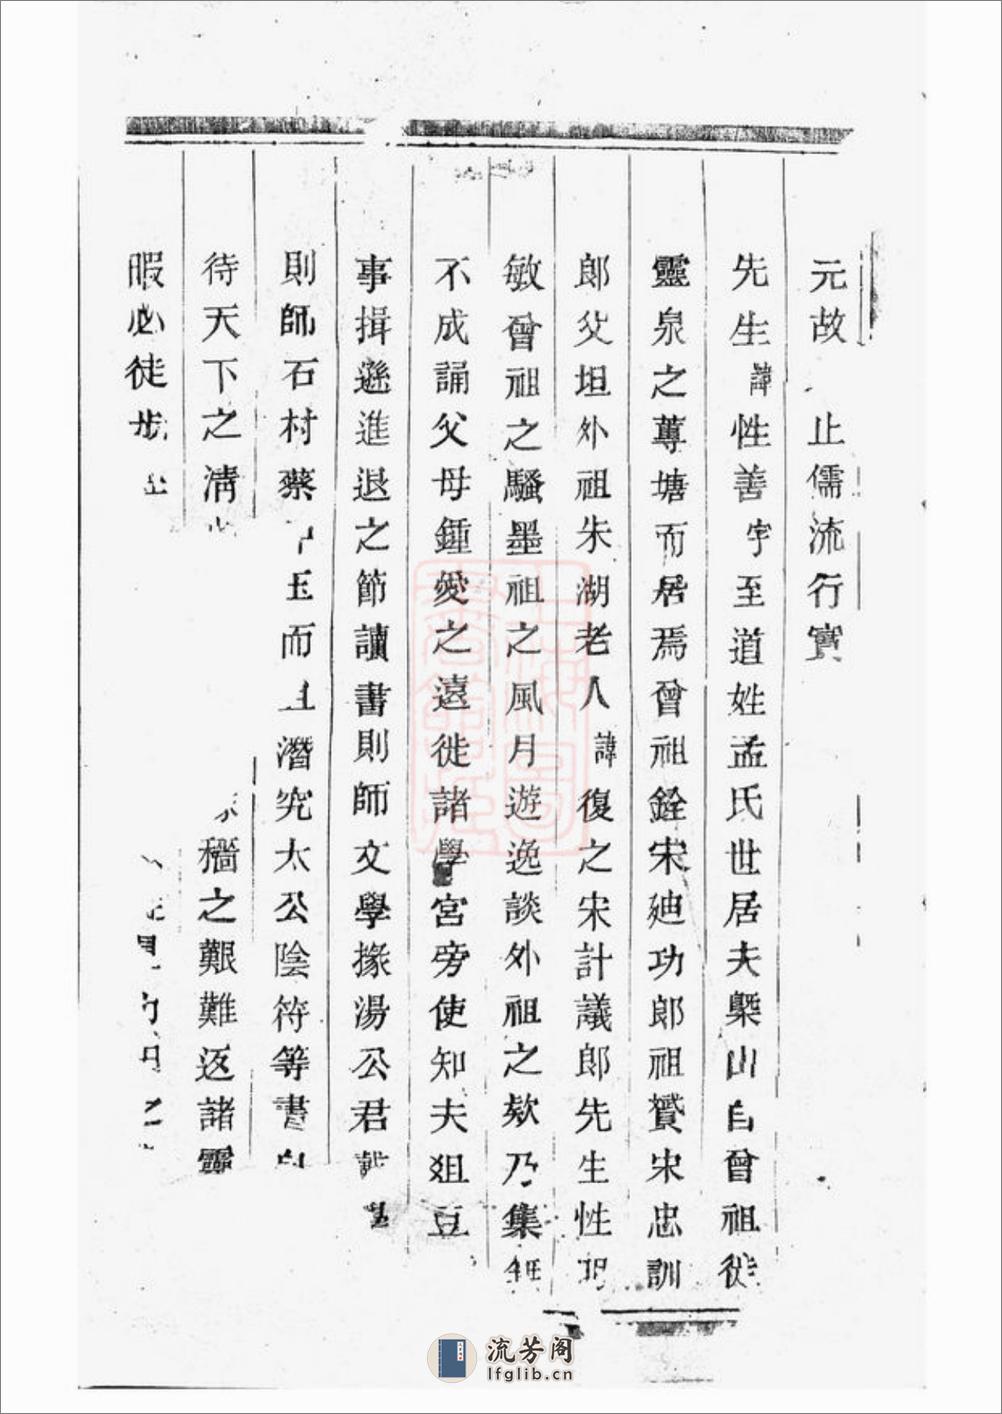 元故 止儒流行實
先生諱性善字至道姓孟氏世居夫槩山自曾祖徙
靈泉之蓴塘而居焉曾祖銓宋廸功郎祖贇宋忠訓
郎父坦外祖朱湖老人諱復之宋計議郎先生性
敏曾祖之騷墨祖之風月遊逸談外祖之欸乃集
不成誦父母鍾愛之遠徙諸學宮旁使知夫俎豆
事揖遜進退之節讀書則師文學掾湯公君
則師石村蔡 玉而 潛究太公陰符等書
待天下之清 穡之艱難返諸靈
暇必徒步
流芳阁
lfglib.cn